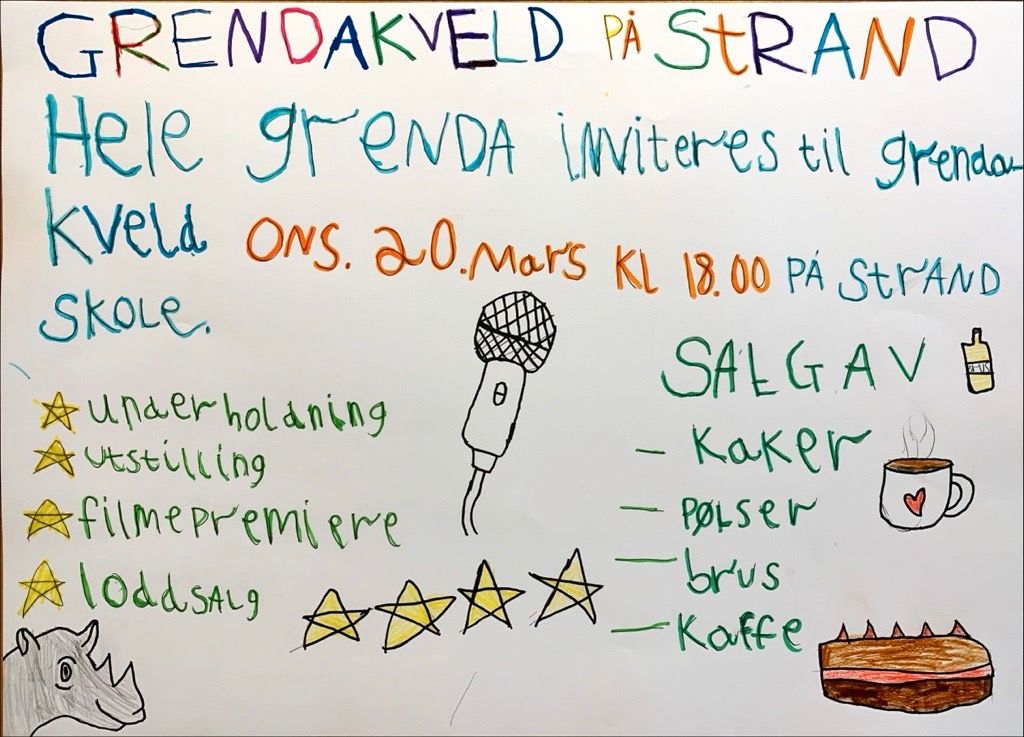 GRENDAKVELD PÅ StRAND
Hele grENDA inviteres til grenda-
kveld ONS. 20. Mars KL 18.00 PÅ StrAND
SKOLE.
underholdning
utstilling
filmepremiere
loddsalg
SALG AV
- kaker
- PØLser
- brus
- Kaffe